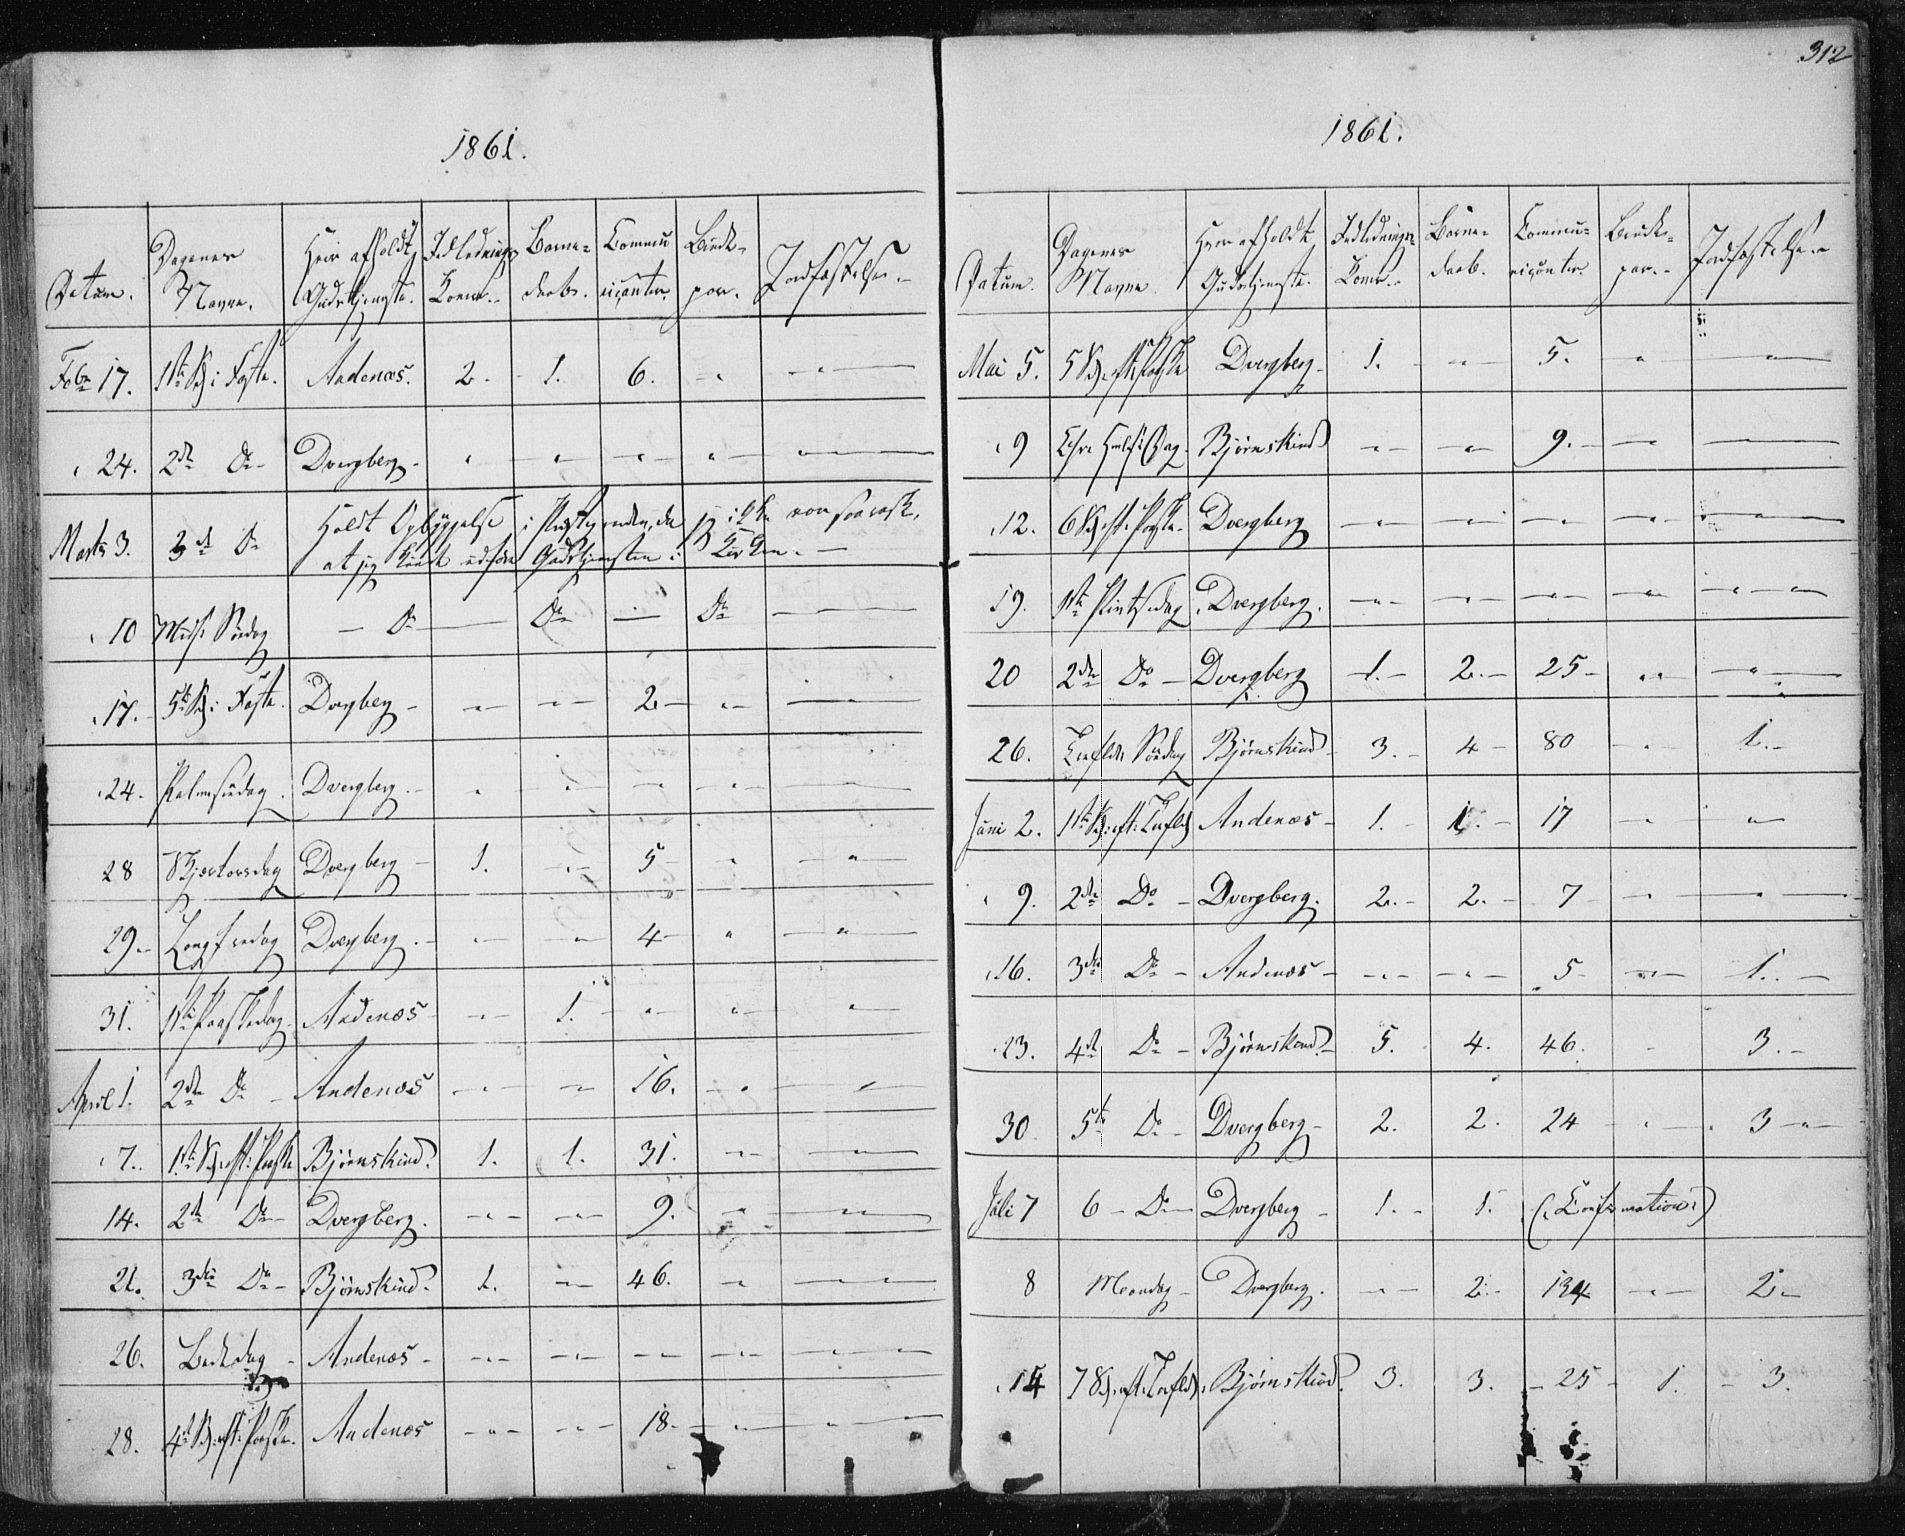 312
1861.
Datum. | Dagenes Navne. | Hvor afholdt Gudstjeneste. | Indlednings Koner. | Barne- daab. | Commu nicanter. | Brude- par. | Jordfæstelser.
Febr 17. | 1ste Sø: i Faste. | Andenæs. | 2. | 1. | 6. | " | "
" 24. | 2den Do | Dverberg | " | " | " | " | "
Marts 3. | 3die Do | Holdt Opbyggelse i Præstegaarden, da jeg ikke var saa rask,
at jeg kunde udføre Gudstjenesten i Kirken. —
" 10 | Midf. Søndag | — Do — Do — Do —
" 17. | 5te Sø: i Faste. | Dverberg | " | " | 2 | " | "
" 24. | Palmesøndag. | Dverberg. | " | " | " | " | "
28 | Skjærtorsdag | Dverberg | 1. | " | 5 | " | "
29. | Langfredag | Dverberg. | " | " | 4 | " | "
31. | 1ste Paaskedag | Andenæs | " | 1. | " | " | "
April 1. | 2den Do | Andenæs | " | " | 16. | " | "
" 7. | 1ste Sø: eft: Paaske | Bjørnskind. | 1. | 1. | 31. | " | "
14. | 2den Do | Dverberg. | " | " | 9. | " | "
21. | 3die Do | Bjørnskind. | 1. | " | 46. | " | "
26. | Bededag | Andenæs | " | " | " | " | "
28. | 4de Sø: eft: Paaske. | Andenæs | " | " | 18. | " | "
1861.
Datum. | Dagenes Navne. | Hvor afholdt Gudstjeneste. | Indlednings- Koner. | Barne- daab. | Commu- nicanter. | Brude- par. | Jordfæstelser
Mai 5. | 5 Sø: eft: Paaske | Dverberg | 1. | " | 5. | " | "
" 9 | Chr: Himlf: Dag. | Bjørnskind | " | " | 9. | " | "
" 12. | 6 Sø: eft: Paaske. | Dverberg | " | " | " | " | "
19. | 1ste Pintsedag | Dverberg. | " | " | " | " | "
20 | 2den Do | Dverberg | 1. | 2. | 25 | " | "
26. | Trefold: Søndag | Bjørnskind | 3. | 4 | 80 | " | 1.
Juni 2. | 1ste Sø: eft: Trefold | Andenæs | 1. | 1. | 17 | " | "
" 9. | 2den Do | Dverberg. | 2. | 2. | 7 | " | "
" 16. | 3die Do | Andenæs | " | " | 5 | " | 1.
" 23. | 4de Do | Bjørnskind. | 5. | 4. | 46. | " | 3.
30. | 5te Do | Dverberg | 2. | 2. | 24 | " | 3
Juli 7 | 6 Do | Dverberg | 1. | 1. | (: Confirmation :)
8 | Mandag | Dverberg. | " | 2. | 134 | " | 2.
" 14 | 7 Sø: eft: Trefold. | Bjørnskind. | 3. | 3. | 25 | 1. | 3.